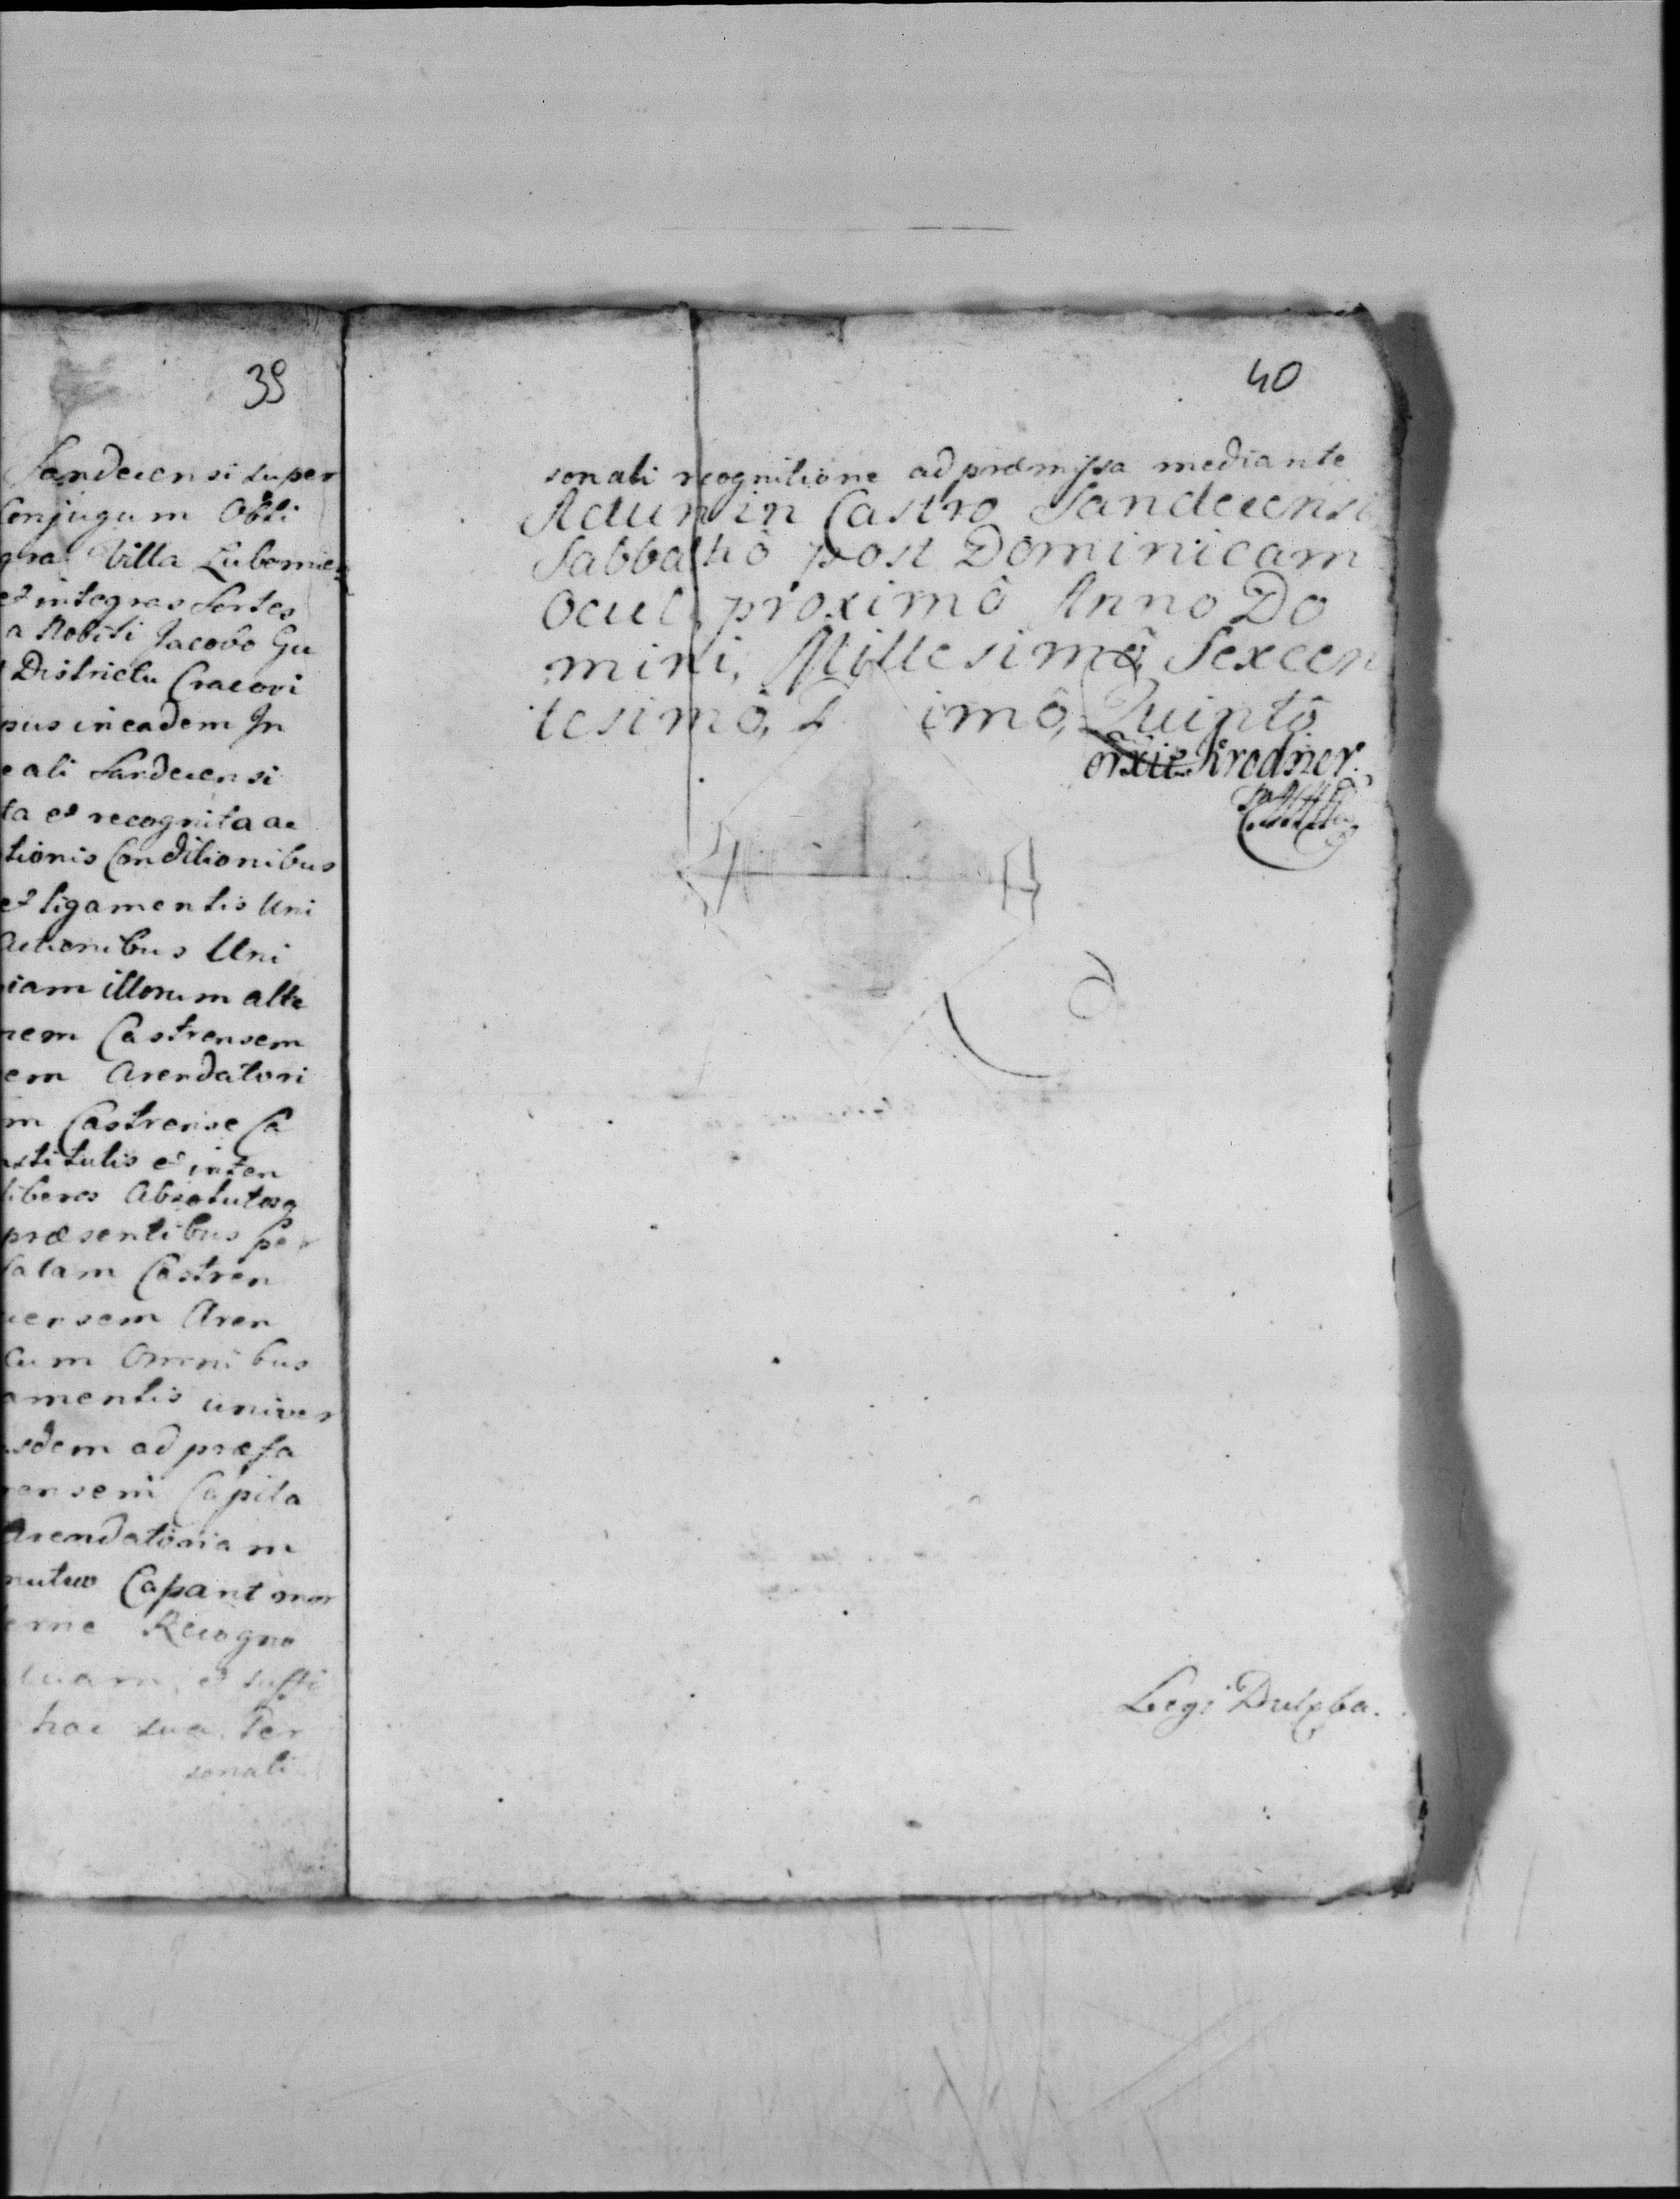 39
Sandecensi super
Conjugum Obli
gra Villa Lubomie
et integras Sortes
a Nobili Jacobo Gu
Districtu Cracovi
pus in eadem In
e ali Sandecensi
ta et recognita ac
tionis Conditionibus
et ligamentis Uni
Actionibus Uni
iam illorum alte
nem Castrensem
em Arendatori
m Castrense Ca
stitutis et inten
liberos Absolutosq
præsentibus per
latam Castren
censem Aren
cum Omnibus
amentis univer
sdem ad præfa
ensem Capita
Arendatoriam
mutuo Capant mor
erne Recogno
tuam, et suffi
hac sua Per
sonali
40
sonali recognitione ad præmissa mediante
Actum in Castro Sandecensi
Sabbathô post Dominicam
Oculi proximô Anno Do
mini, Millesimô, Sexcen
tesimô, imô, Quintô
Krodner
Legi Dulxba.